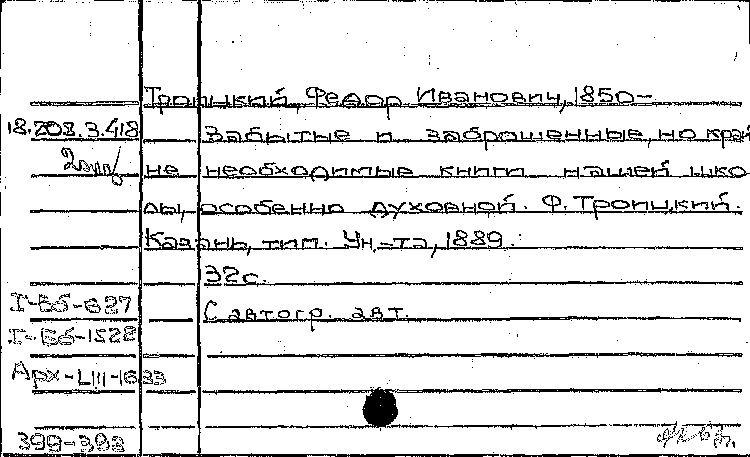 Троицкий, Федор Иванович, 1850-
18.203.3.418
Забытые и заброшенные, но край
не необходимые книги нашей шко
лы, особенно духовной. Ф. Троицкий.
Казань, тип. Ун-та, 1889.
32с.
I-Бб-627
С автогр. авт.
I-Бб-1522
Арх-LIII-1633
399-393